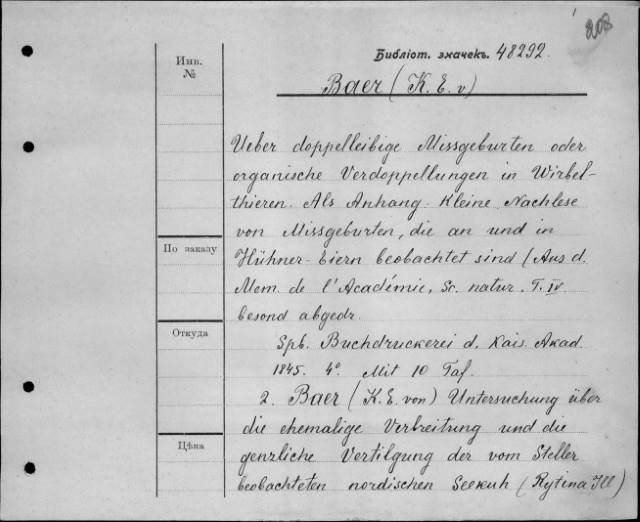 208
Библіот. значекъ. 48292.
Инв.
№
Baer (K. E. v)
Ueber doppelleibige Missgeburten oder
organische Verdoppellungen in Wirbel-
thieren. Als Anhang. Kleine Nachlese
von Missgeburten, die an und in
По заказу
Hühner-Eiern beobachtet sind (Aus d.
Mem. de l'Académie, Sc. natur. T. IV
besond abgedr.
Откуда
Spb. Buchdruckerei d. Kais. Akad.
1845. 4°. Mit 10 Taf.
2. Baer (K. E. von) Untersuchung über
die ehemalige Verbreitung und die
Цѣна
genzliche Vertilgung der vom Steller
beobachteten nordischen Seekuh (Rytina Ill)